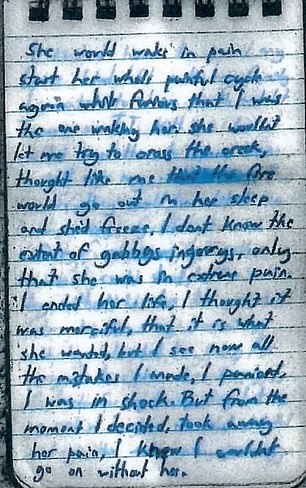 She would wake in pain
start her whole painful cycle
again what furious that I was
the one waking her. She wouldnt
let me try to cross the creek,
thought like me the fire
would go out in her sleep
and shed freeze, I dont know the
extent of gabbys ingerys, only
that she was in extreme pain.
I ended her life, I thought it
was merciful, that it is what
she wanted, but I see now all
the mistakes I made, I panicked,
I was in shock. But from the
moment I decided, took away
her pain, I knew I wouldnt
go on without her.